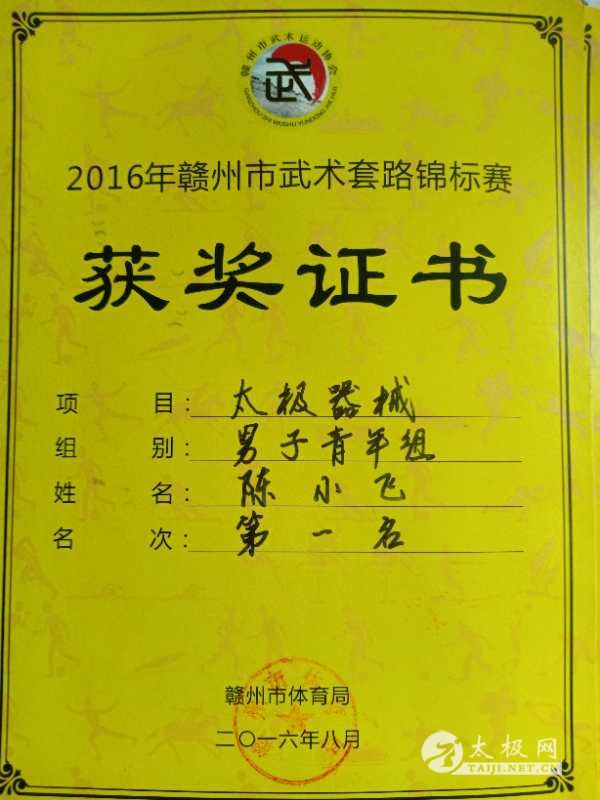 赣州市武术运动协会
武
GANZHOU SHI WUSHU YUNDONG XIE HUI
2016年赣州市武术套路锦标赛
获奖证书
项 目：太极器械
组 别：男子青年组
姓 名：陈小飞
名 次：第一名
赣州市体育局
二〇一六年八月
太极网
TAIJI.NET.CN